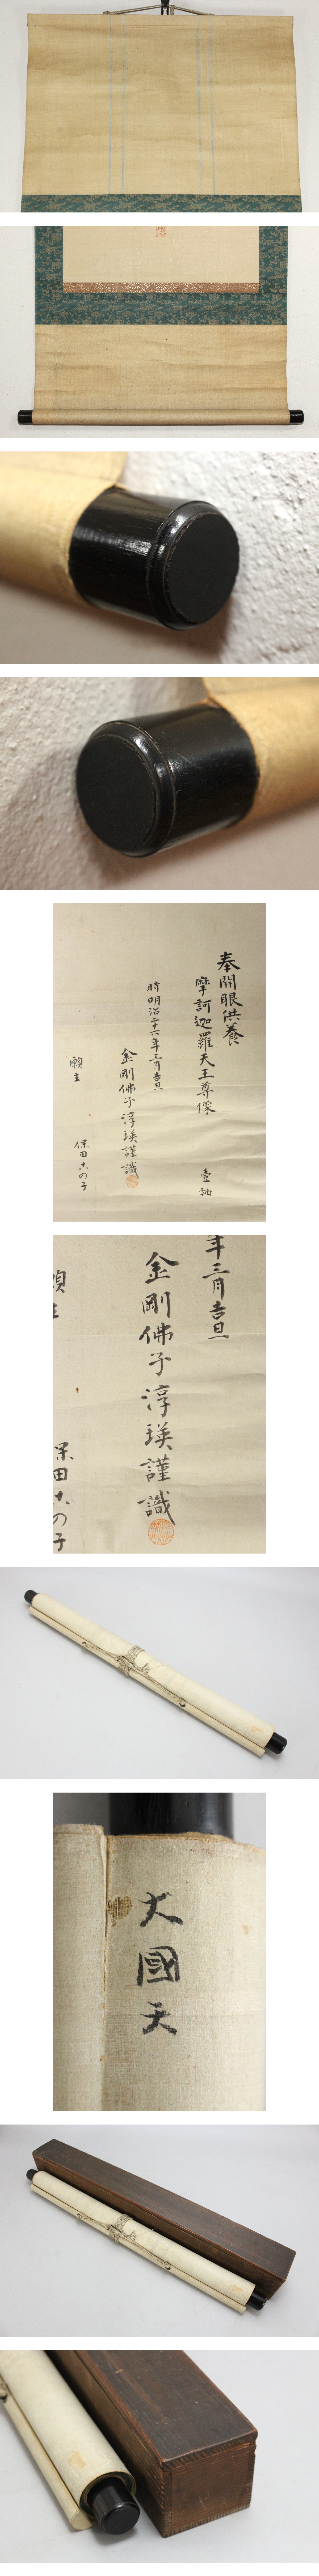 奉開眼供養
摩訶迦羅天王尊像 壹軸
時明治二十六年三月吉旦
金剛佛子淳瑛謹識
願主 保田この子
年三月吉旦
金剛佛子淳瑛謹識
保田この子
大國天